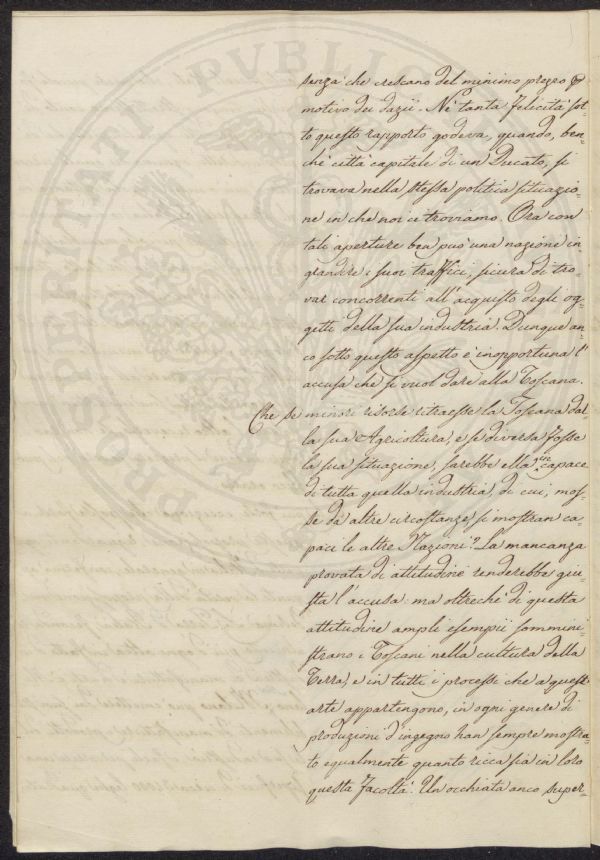 senza che crescano del minimo prezzo p
motivo dei dazii. Nè tanta felicità sot=
to questo rapporto godeva, quando, ben=
chè città capitale di un Ducato, si
trovava nella stessa politica situazio=
ne in che noi ci troviamo. Ora con
tali aperture ben può una nazione in=
grandire i suoi traffici, sicura di tro=
var concorrenti all'acquisto degli og=
getti della sua industria. Dunque an=
co sotto questo aspetto è inopportuna l'
accusa che si vuol dare alla Toscana.
Che se minori risorse ritraesse la Toscana dal=
la sua Agricoltura, e se diversa fosse
la sua situazione, sarebbe ella incapace
di tutta quella industria, di cui, mos=
se da altre circostanze si mostran ca=
paci le altre Nazioni? La mancanza
provata di attitudine renderebbe giu=
sta l'accusa: ma oltrechè di questa
attitudine ampli esempii sommini=
strano i Toscani nella cultura della
Terra, e in tutti i processi che a quest'
arte appartengono, in ogni genere di
produzioni d'ingegno han sempre mostra=
to equalmente quanto ricca sia in loro
questa facoltà. Un occhiata anco super=
PROSPERITATI PUBLICAE